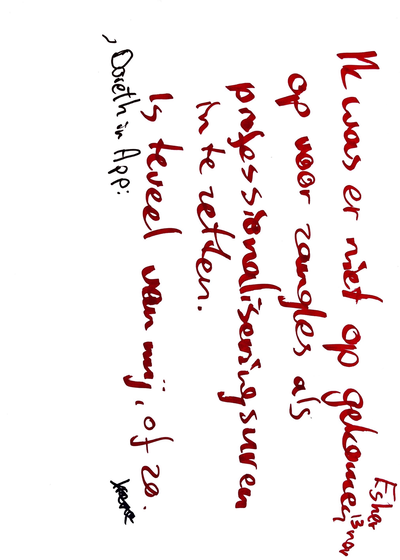 Ik was er niet op gekomen,
Esher
13 nov
op voor zangles als
professionaliseringsuren
in te zetten.
Is teveel van mij, of zo.
, Doreth in App: